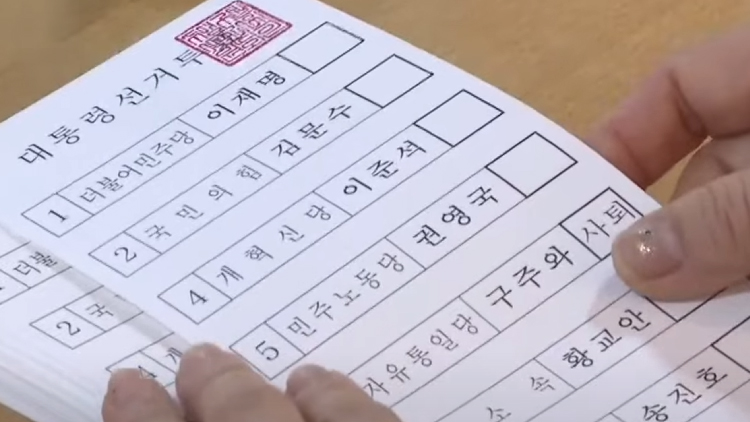 대통령선거투
1 더불어민주당 이재명
2 국민의힘 김문수
4 개혁신당 이준석
5 민주노동당 권영국
자유통일당 구주와 사퇴
소속 황교안
송진호
1 더불
2 국
4 개